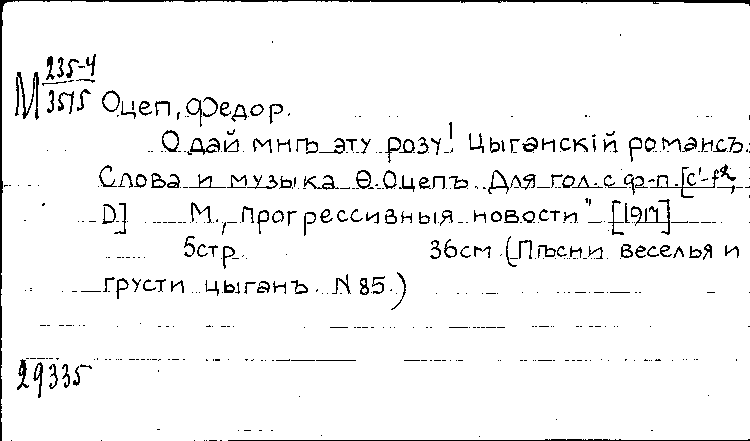 М 235-4
3515
Оцеп, Федор.
О дай мнѣ эту розу! Цыганскій романсъ.
Слова и музыка Ѳ. Оцепъ. Для гол. с ф-п. [c¹-f²,
D] М., Прогрессивныя новости" [1917]
5стр. 36см. (Пѣсни веселья и
грусти цыганъ. N 85.)
29335